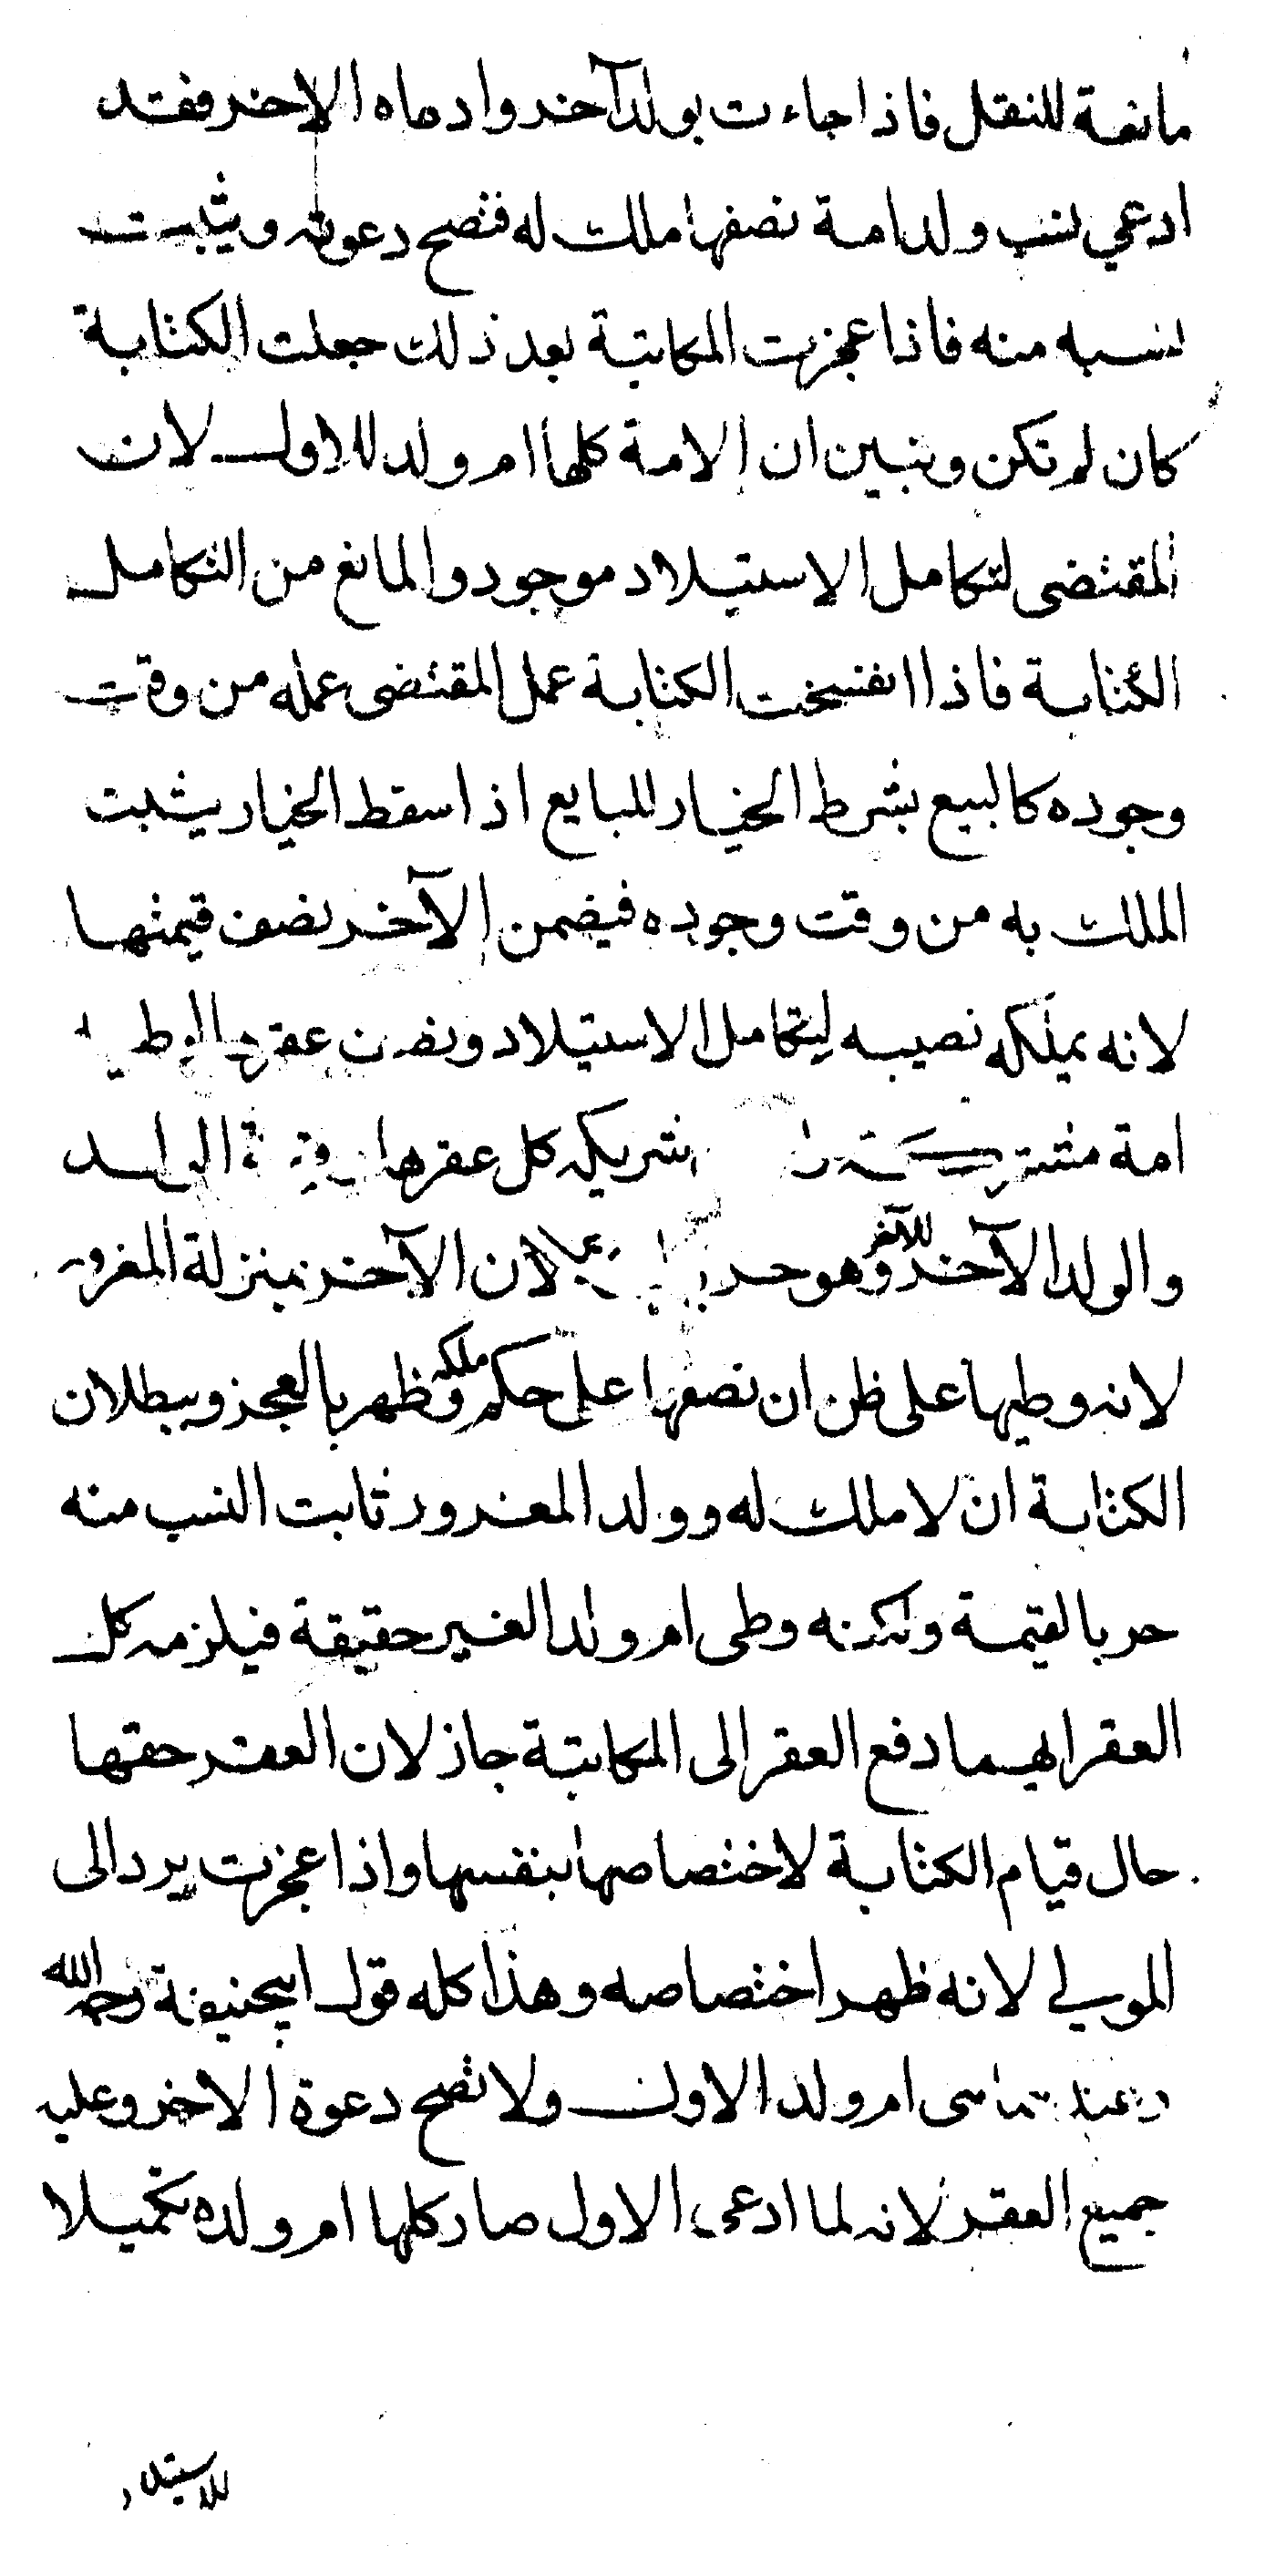 مانعة للنقل فاذا جاءت بولد آخر وادعاه الاخر فقد
ادعي نسب ولد امة نصفها ملك له فتصح دعوته ويثبت
نسبه منه فاذا عجزت المكاتبة بعد ذلك جعلت الكتابة
كان لم تكن وتبين ان الامة كلها ام ولد للاول لان
المقتضى لتكامل الاستيلاد موجود والمانع من التكامل
الكتابة فاذا انفسخت الكتابة عمل المقتضى عمله من وقت
وجوده كالبيع بشرط الخيار للبايع اذا سقط الخيار يثبت
الملك به من وقت وجوده فيضمن الآخر نصف قيمتها
لانه يملكه نصيبه ليتكامل الاستيلاد ونصف عقرها
امة مشتركة شريكه كل عقرها وقيمة الولد
والولد الآخر للآخر وهو حر لان الآخر بمنزلة المغرور
لانه وطيها على ظن ان نصفها على حكم ملكه وظهر بالعجز وببطلان
الكتابة ان لا ملك له وولد المغرور ثابت النسب منه
حر بالقيمة ولكنه وطى ام ولد الغير حقيقة فيلزمه كل
العقر ايهما دفع العقر الى المكاتبة جاز لان العقر حقها
حال قيام الكتابة لاختصاصها بنفسها واذا عجزت يرد الى
المولي لانه ظهر اختصاصه وهذا كله قول ابيحنيفة رحمه الله
وعندهما هى ام ولد الاول ولا تصح دعوة الاخر وعليه
جميع العقر لانه لما ادعى الاول صار كلها ام ولده تكميلا
للاستيلاد